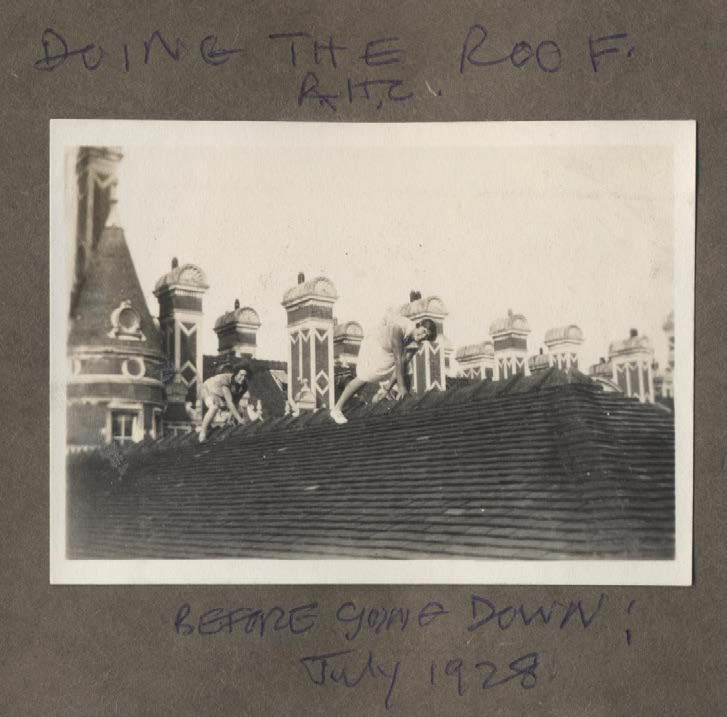 DOING THE ROOF.
R.H.C.
BEFORE GOING DOWN!
July 1928